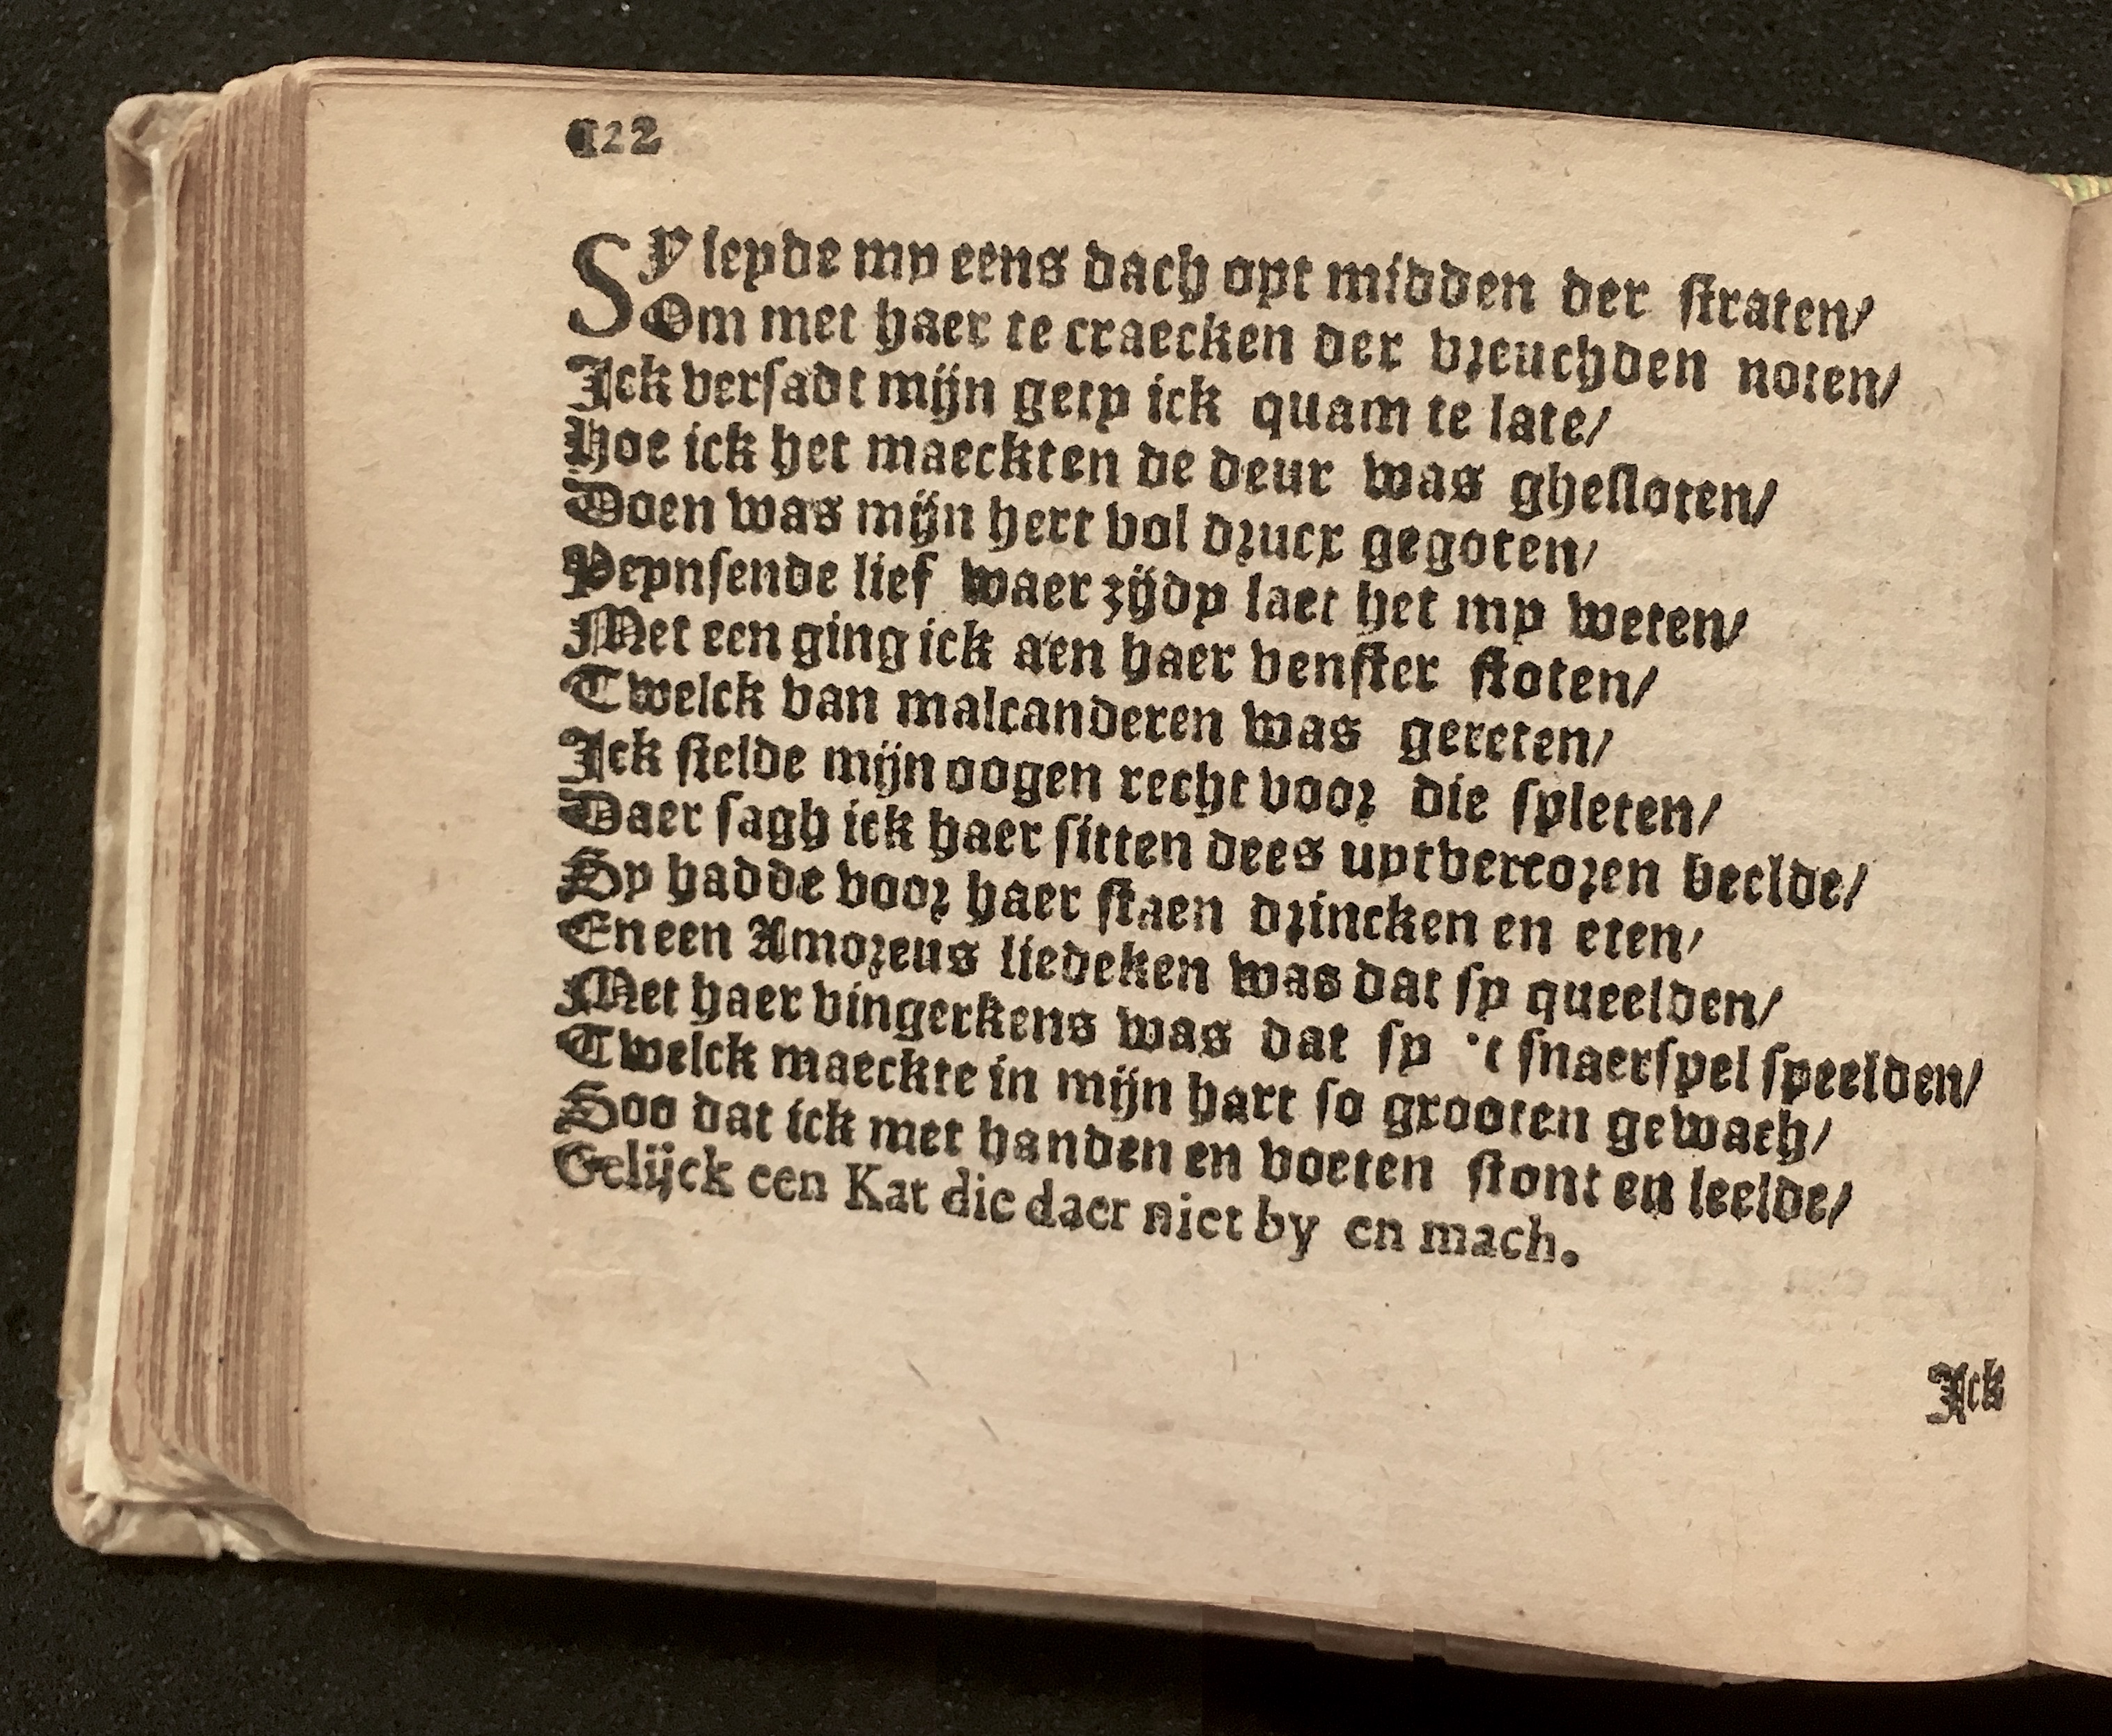 122
Sy leyde my eens dach opt midden der straten/
Om met haer te craecken der vreuchden noten/
Ick versadt mijn gety ick quam te late/
Hoe ick het maeckten de deur was ghesloten/
Doen was mijn hert vol drucx gegoten/
Peynsende lief waer zijdy laet het my weten/
Met een ging ick aen haer venster stoten/
Twelck van malcanderen was gereten/
Ick stelde mijn oogen recht voor die spleten/
Daer sagh ick haer sitten dees uytvercoren beelde/
Sy hadde voor haer staen drincken en eten/
En een Amoreus liedeken was dat sy queelden/
Met haer vingerkens was dat sy 't snaerspel speelden/
Twelck maeckte in mijn hart so grooten gewach/
Soo dat ick met handen en voeten stont en leelde/
Gelijck een Kat die daer niet by en mach.
Ick